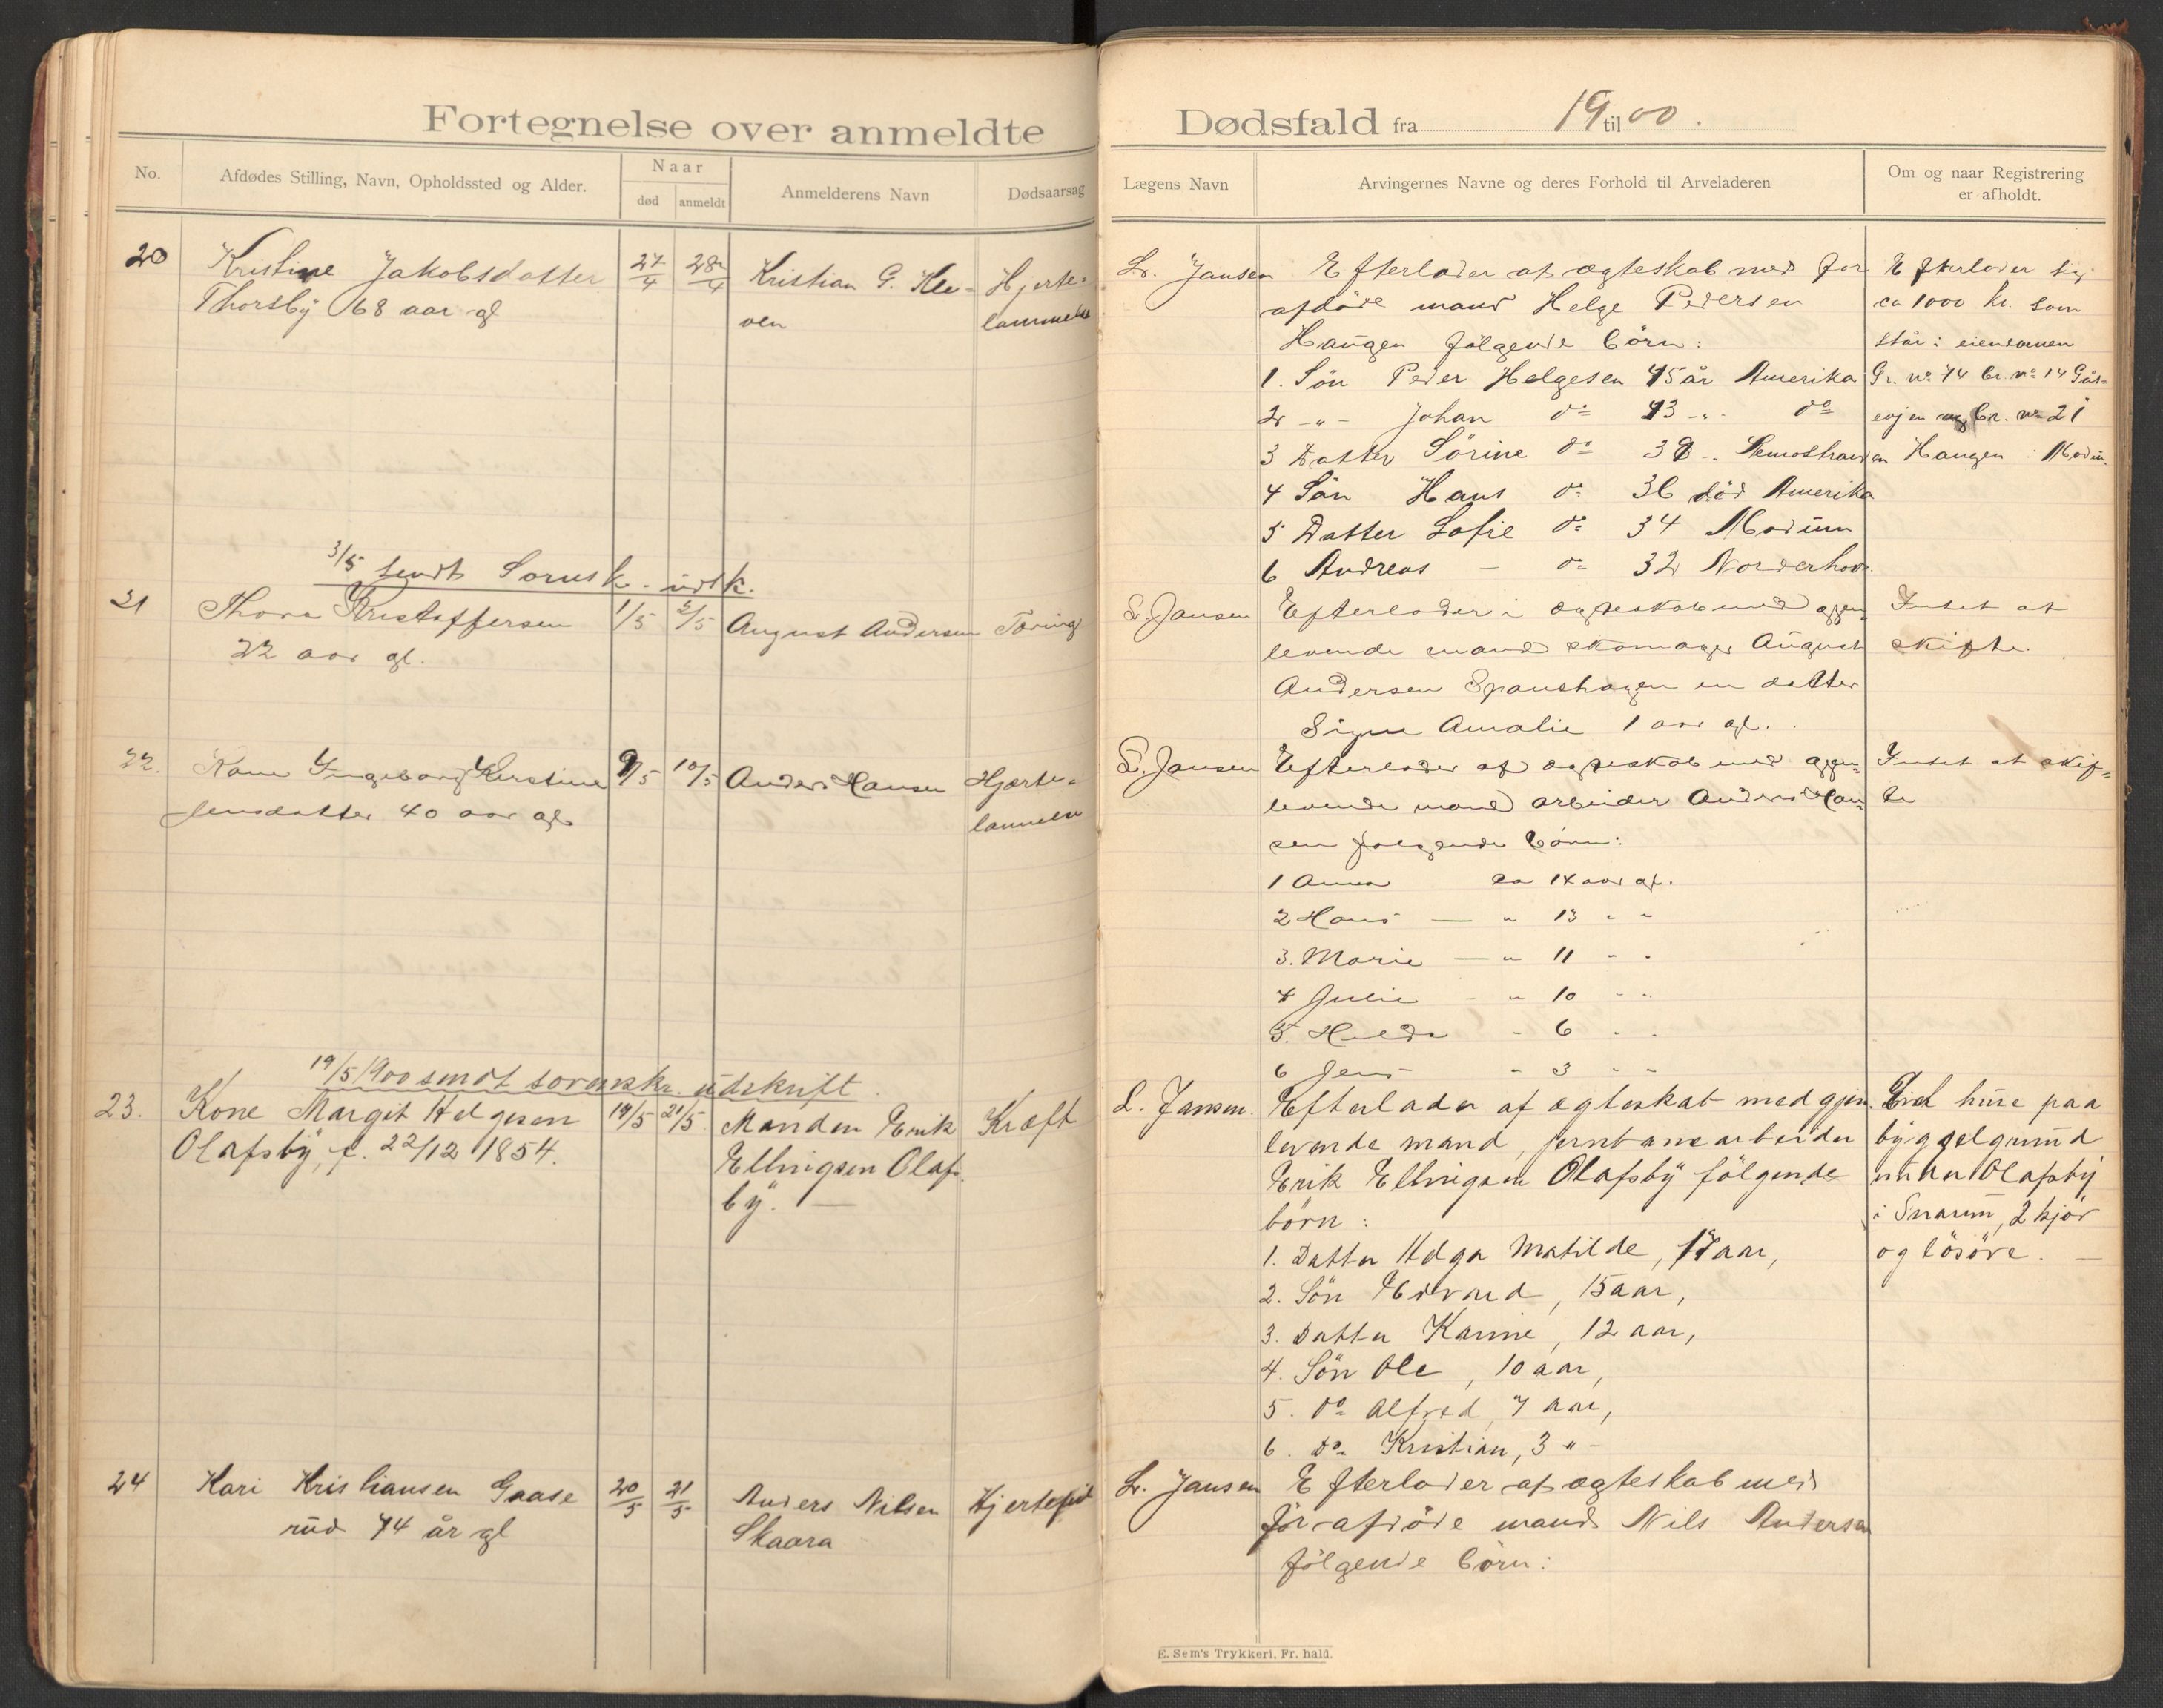 Fortegnelse over anmeldte
No.
Afdødes Stilling, Navn, Opholdssted og Alder.
Naar
død
anmeldt
Anmelderens Navn
Dødsaarsag
20
Kristine Jakobsdatter
Thorsby 68 aar gl
27/4
28/4
Kristian G. Kle-
ven
Hjerte-
lammelse
3/5 sendt Sorensk. udsk.
21
Thora Kristoffersen
22 aar gl.
1/5
2/5
August Andersen
Tæring
22.
Kone Ingeborg Kerstine
Jensdatter 40 aar gl
9/5
10/5
Anders Hansen
Hjærte-
lammelse
19/5 1900 sendt sorenskr. udskrift.
23.
Kone Margit Helgesen
Olafsby, f. 22/12 1854.
19/5
21/5
Manden Erik
Ellingsen Olafs
by. —
Kræft
24
Kari Kristiansen Gaase
rud 74 år gl
20/5
21/5
Anders Nilsen
Skaara
Hjertefeil
Dødsfald fra 19 til 00.
Lægens Navn
Arvingernes Navne og deres Forhold til Arveladeren
Om og naar Registrering
er afholdt.
L. Jansen
Efterlader af ægteskab med for
afdöde mand Helge Pedersen
Haugen fölgende börn:
1. Sön Peder Helgesen 45 år Amerika
2 -„- Johan do 43 -„- do
3 Datter Sörine do 38 -„ Semostranden
4 Sön Hans do 36 död Amerika
5 Datter Sofie do 34 Modum
6 Andreas - do 32 Norderhov
Efterlader sig
ca 1000 kr. som
står i eiendomen
Gr. no 74 br. no 14 Gås-
evjen og br. no 21
Haugen i Modum.
L. Jansen
Efterlader i ægteskab med gjen-
levende mand skomager August
Andersen Spanshagen en datter
Signe Amalie 1 aar gl.
Intet at
skifte.
L. Jansen
Efterlader af ægteskab med gjen-
levende mand arbeider Anders Han-
sen følgende börn:
1 Anna ca 14 aar gl.
2 Hans — „ 13 „ „
3. Marie — „ 11 „ „
4 Julie - „ 10 „ „
5. Hulda - 6 „ „
6 Jens „ 3 „ „
Intet at skif-
te
L. Jansen.
Efterlader af ægteskab med gjen.
levende mand, jernbanearbeider
Erik Ellingsen Olafsby fölgende
börn:
1. Datter Helga Matilde, 17 aar,
2. Sön Edvard, 15 aar,
3. Datter Karine, 12 aar,
4. Sön Ole, 10 aar,
5. do Alfred, 7 aar,
6. do Kristian, 3 „ -
Eiet huse paa
byggselgrund
under Olafsby
i Snarum, 2 kjör
og lösöre. —
L. Jansen
Efterlader af ægteskab med
för afdöde mand Nils Andersen
fölgende börn:
E. Sem's Trykkeri, Fr. hald.